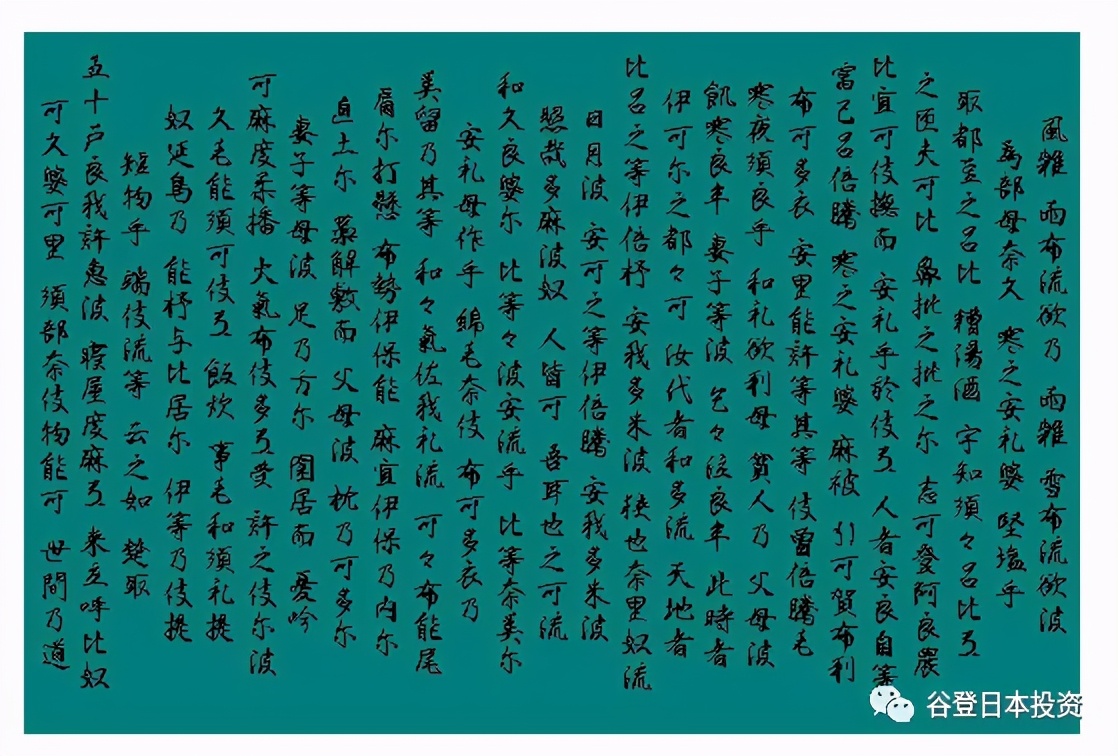 風雜 雨布流欲乃 雨雜 雪布流欲波
為部母奈久 寒之安礼婆 堅塩乎
取都豆之呂比 糟湯酒 宇知須々呂比弖
之匝夫可比 鼻批之批之尓 志可登阿良農
比宜可伎撫而 安礼乎於伎弖 人者安良自等
富己呂倍騰 寒之安礼婆 麻被 引可賀布利
布可多衣 安里能許等其等 伎曽倍騰毛
寒夜須良乎 和礼欲利母 貧人乃 父母波
飢寒良牟 妻子等波 乞々泣良牟 此時者
伊可尓之都々可 汝代者和多流 天地者
比呂之等伊倍杼 安我多米波 狭也奈里奴流
日月波 安可之等伊倍騰 安我多米波
照哉多麻波奴 人皆可 吾耳也之可流
和久良婆尓 比等々波安流乎 比等奈美尓
安礼母作乎 綿毛奈伎 布可多衣乃
美留乃其等 和々氣佐我礼流 可々布能尾
肩尓打懸 布勢伊保能 麻宜伊保乃内尓
直土尓 藁解敷而 父母波 枕乃可多尓
妻子等母波 足乃方尓 囲居而 憂吟
可麻度柔播 火氣布伎多弖受 許之伎尓波
久毛能須可伎弖 飯炊 事毛和須礼提
奴延鳥乃 能杼与比居尓 伊等乃伎提
短物乎 端伎流等 云之如 楚取
五十戸良我許恵波 寝屋度麻弖 来立呼比奴
可久婆可里 須部奈伎物能可 世間乃道
谷登日本投资